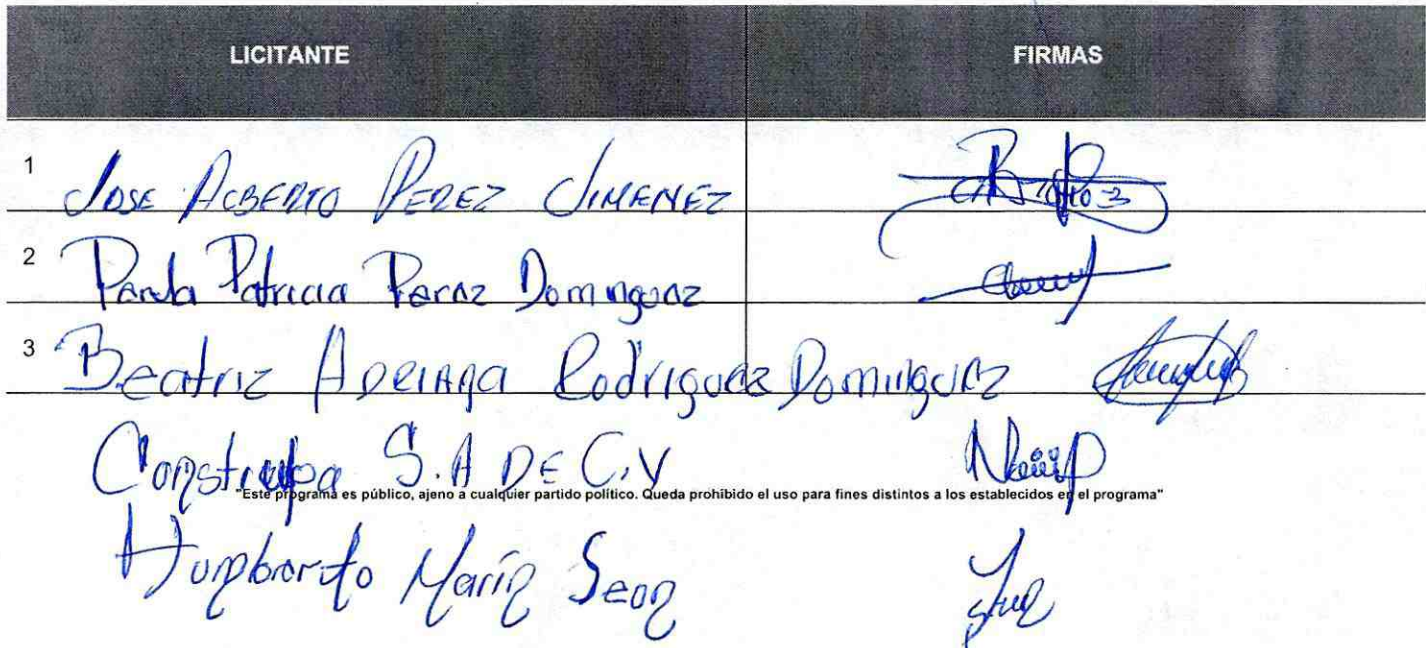 LICITANTE FIRMAS
1 JOSE ALBERTO PEREZ JIMENEZ
2 Patricia Perez Dominguez
3 Beatriz ADRIANA Rodriguez Dominguez
S.A DE C.V
"Este programa es público, ajeno a cualquier partido político. Queda prohibido el uso para fines distintos a los establecidos en el programa"
Humberto Marín